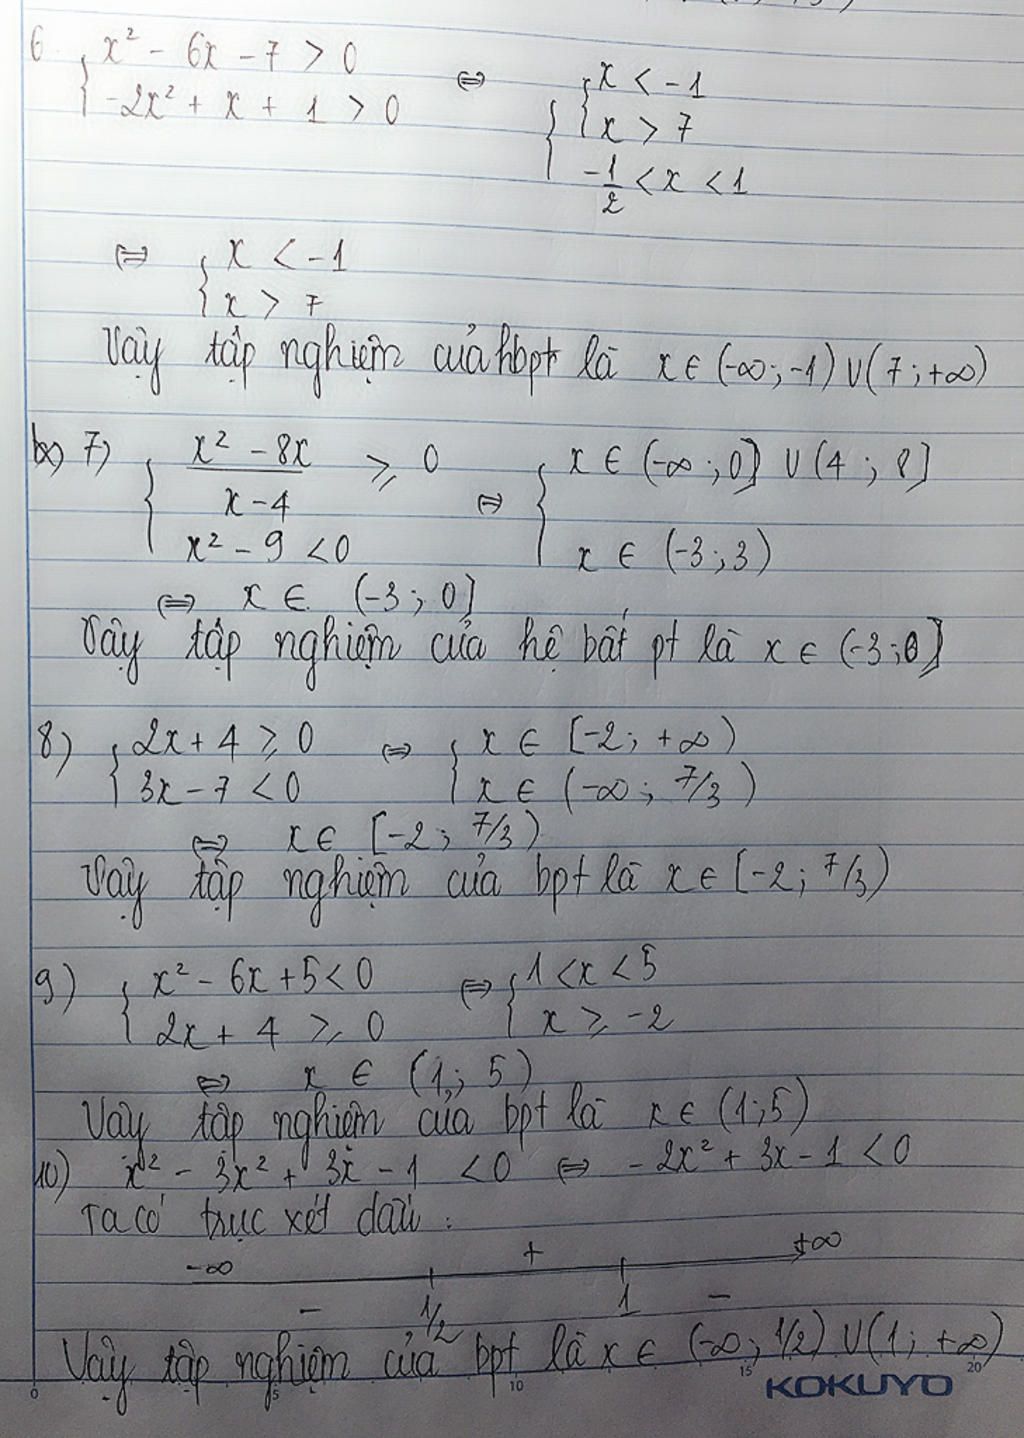 6. { x² - 6x - 7 > 0
-2x² + x + 1 > 0 ⇔ { { x < -1
x > 7
-1/2 < x < 1
⇔ { x < -1
x > 7
Vậy tập nghiệm của hbpt là x ∈ (-∞; -1) ∪ (7; +∞)
7) { (x² - 8x)/(x - 4) ⩾ 0
x² - 9 < 0 ⇔ { x ∈ (-∞; 0] ∪ (4; 8]
x ∈ (-3; 3)
⇔ x ∈ (-3; 0]
Vậy tập nghiệm của hệ bất pt là x ∈ (-3; 0]
8) { 2x + 4 ⩾ 0
3x - 7 < 0 ⇔ { x ∈ [-2; +∞)
x ∈ (-∞; 7/3)
⇔ x ∈ [-2; 7/3)
Vậy tập nghiệm của bpt là x ∈ [-2; 7/3)
9) { x² - 6x + 5 < 0
2x + 4 ⩾ 0 ⇔ { 1 < x < 5
x ⩾ -2
⇔ x ∈ (1; 5)
Vậy tập nghiệm của bpt là x ∈ (1; 5)
10) x² - 3x² + 3x - 1 < 0 ⇔ -2x² + 3x - 1 < 0
Ta có trục xét dấu :
-∞ + +∞
- 1/2 1 -
Vậy tập nghiệm của bpt là x ∈ (-∞; 1/2) ∪ (1; +∞)
0 5 10 15 20
KOKUYO